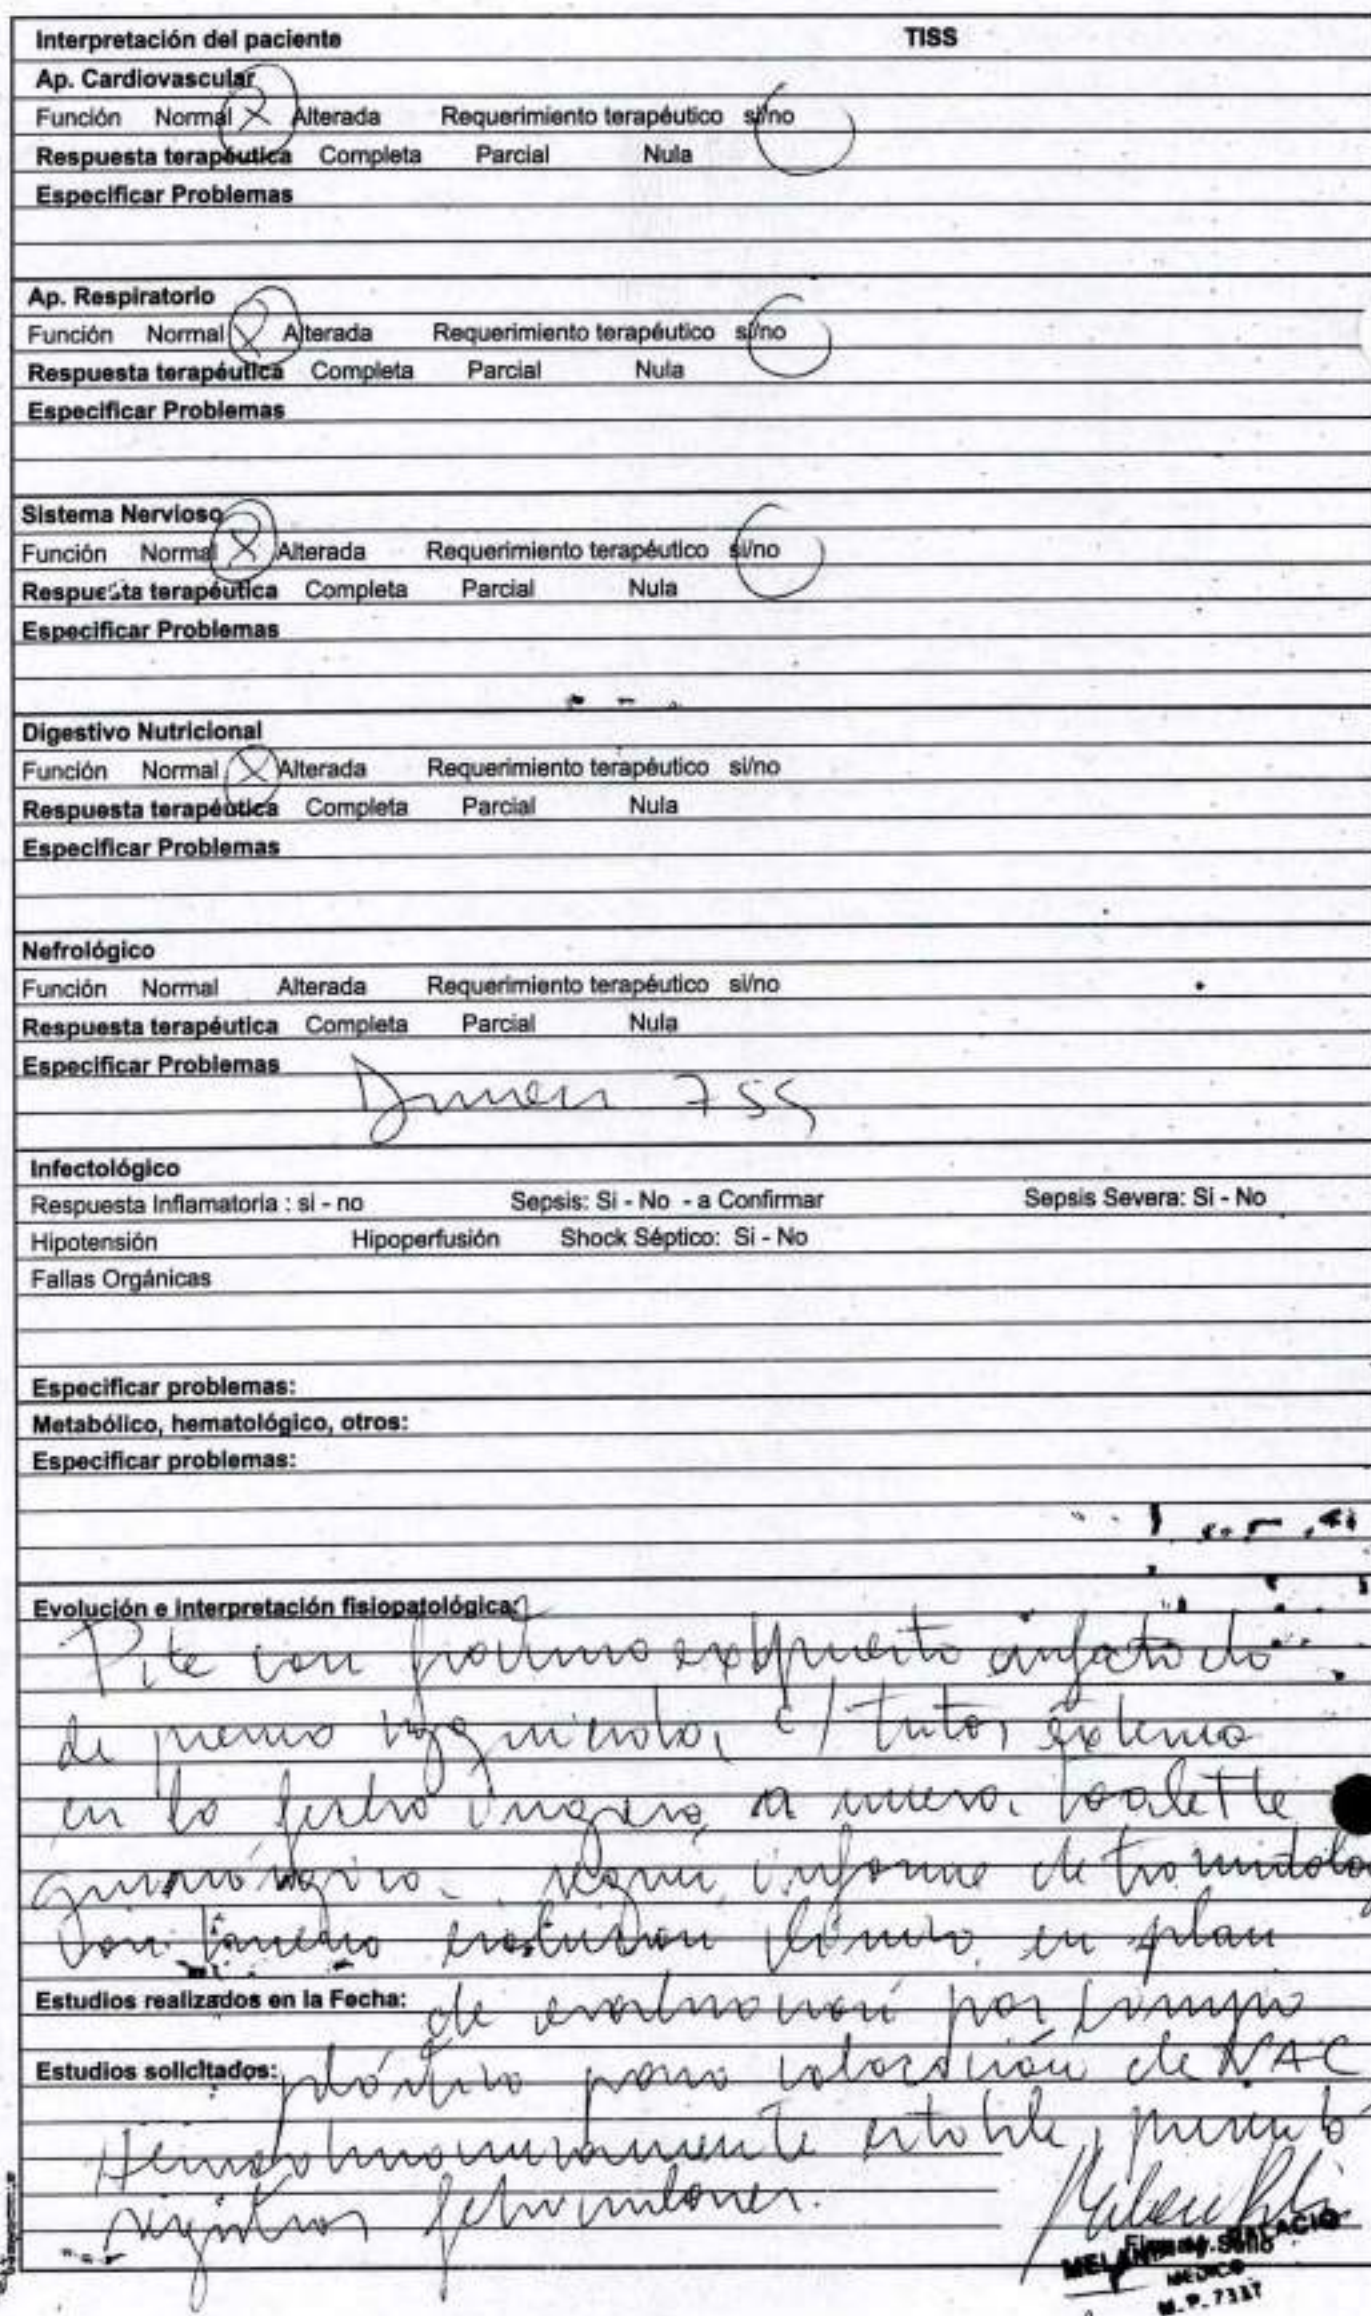 Interpretación del paciente TISS
Ap. Cardiovascular
Función Normal X Alterada Requerimiento terapéutico si/no
Respuesta terapéutica Completa Parcial Nula
Especificar Problemas
Ap. Respiratorio
Función Normal X Alterada Requerimiento terapéutico si/no
Respuesta terapéutica Completa Parcial Nula
Especificar Problemas
Sistema Nervioso
Función Normal X Alterada Requerimiento terapéutico si/no
Respuesta terapéutica Completa Parcial Nula
Especificar Problemas
Digestivo Nutricional
Función Normal X Alterada Requerimiento terapéutico si/no
Respuesta terapéutica Completa Parcial Nula
Especificar Problemas
Nefrológico
Función Normal Alterada Requerimiento terapéutico si/no
Respuesta terapéutica Completa Parcial Nula
Especificar Problemas
Infectológico
Respuesta Inflamatoria : si - no Sepsis: Si - No - a Confirmar Sepsis Severa: Si - No
Hipotensión Hipoperfusión Shock Séptico: Si - No
Fallas Orgánicas
Especificar problemas:
Metabólico, hematológico, otros:
Especificar problemas:
Evolución e interpretación fisiopatológica:
Pte con fractura expuesta infectada
de pierna izquierda, c/ tutor externo
en la fecha ingresa a nueva toalette
quirúrgica. según informe de traumatolog
evolución en plan
Estudios realizados en la Fecha: de evaluación por
Estudios solicitados: plástica para colocación de VAC
Hemodinamicamente estable, presentó
registros febriculares.
Firma y Sello
PALACIO
MEDICO
M.P. 7337